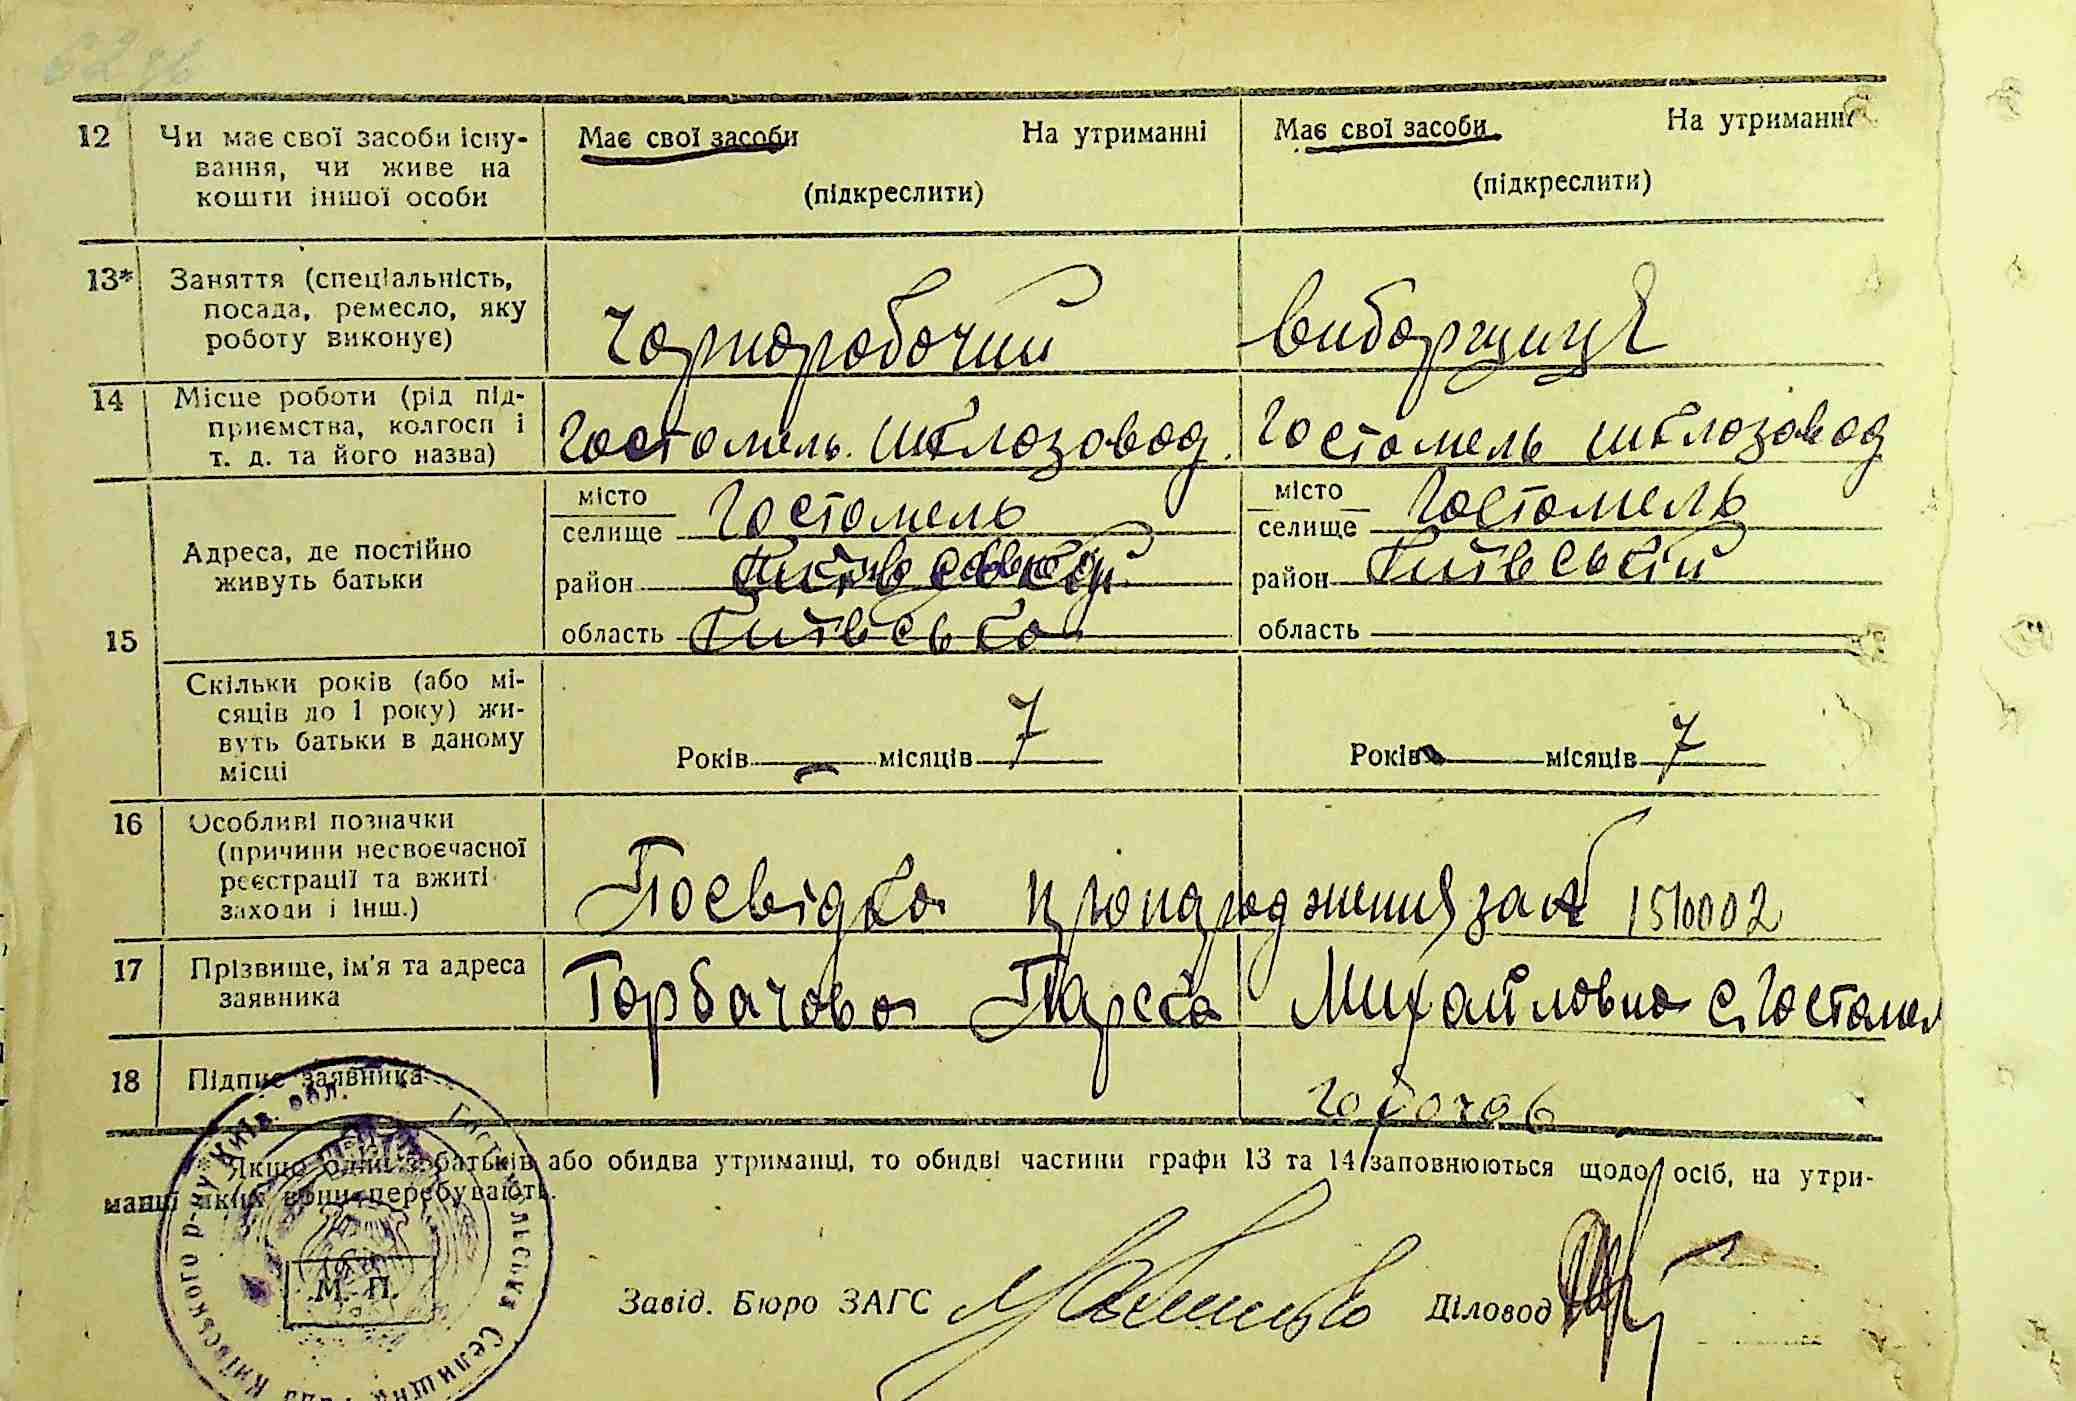 62 зв
12 Чи має свої засоби існу-
вання, чи живе на
кошти іншої особи
Має свої засоби На утриманні
(підкреслити)
Має свої засоби На утриманні
(підкреслити)
13* Заняття (спеціальність,
посада, ремесло, яку
роботу виконує)
Чорноробочий
виборщиця
14 Місце роботи (рід під-
приємства, колгосп і
т. д. та його назва)
Гостомель. шклозавод.
Гостомель шклозавод
15
Адреса, де постійно
живуть батьки
місто
селище Гостомель
район
область Київська
місто
селище Гостомель
район Київський
область
Скільки років (або мі-
сяців до 1 року) жи-
вуть батьки в даному
місці
Років — місяців 7
Років - місяців 7
16 Особливі позначки
(причини несвоєчасної
реєстрації та вжиті
заходи і інш.)
Посвідка про народження за № 1510002
17 Прізвище, ім'я та адреса
заявника
Горбачова Параска Михайловна с. Гостомел
18 Підпис заявника
Горбачов
* Якщо один з батьків або обидва утриманці, то обидві частини графи 13 та 14 заповнюються щодо осіб, на утри-
манні яких вони перебувають.
Гостомельська Селищна Рада Київського р-ну Київ. обл.
М. П.
Завід. Бюро ЗАГС
Діловод